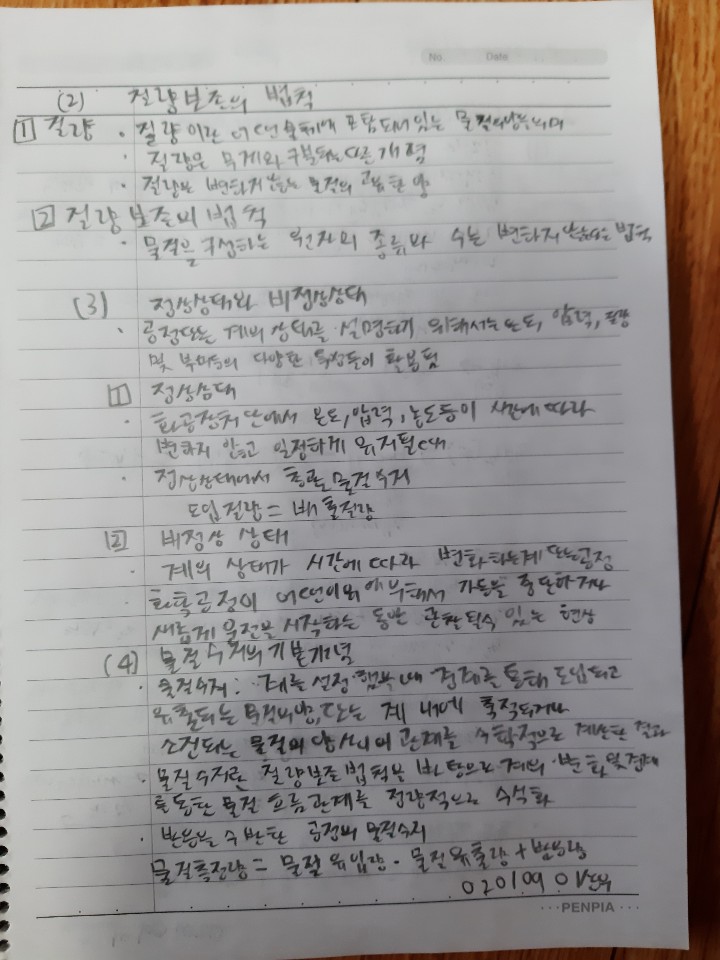 No. Date
(2) 질량보존의 법칙
1 질량 · 질량이란 어떤 물체에 포함되어 있는 물질의 양을 의미
· 질량은 무게와 구분되는 다른 개념
· 질량은 변하지 않는 물질의 고유한 양
2 질량보존의 법칙
· 물질을 구성하는 원자의 종류와 수는 변하지 않는다는 법칙
(3) 정상상태와 비정상상태
· 공정 또는 계의 상태를 설명하기 위해서는 온도, 압력, 질량
및 부피등의 다양한 특성들이 활용됨
1 정상상태
· 화공장치 안에서 온도, 압력, 농도등이 시간에 따라
변하지 않고 일정하게 유지될 때
· 정상상태에서 총괄물질수지
도입질량 = 배출질량
2 비정상 상태
· 계의 상태가 시간에 따라 변화하는 계 또는 공정
· 화학공정이 어떤 이유에 의해서 가동을 중단하거나
새롭게 운전을 시작하는 동안 관찰될 수 있는 현상
(4) 물질수지의 기본개념
· 물질수지: 계를 설정 했을 때 경계를 통해 도입되고
유출되는 물질의 양, 또는 계 내에 축적되거나
소건되는 물질의 양 사이의 관계를 수학적으로 계산한 결과
· 물질수지란 질량보존 법칙을 바탕으로 계의 변화 및 경계
를 통한 물질 흐름 관계를 정량적으로 수식화
· 반응을 수반한 공정의 물질수지
물질축적량 = 물질 유입량 - 물질유출량 + 반응량
02010901
PENPIA